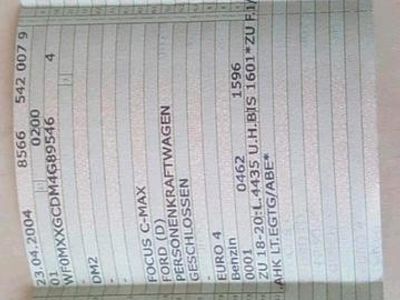 8566 542 007 9
23.04.2004 - 0200
01
WF0MXXGCDM4G89546 - 4
-
DM2
-
-
FOCUS C-MAX
FORD (D)
PERSONENKRAFTWAGEN
GESCHLOSSEN
-
EURO 4
Benzin
0001 0462 1596
ZU 18-20:L.4435 U.H.BIS 1601*ZU F.1/
AHK LT.EGTG/ABE*